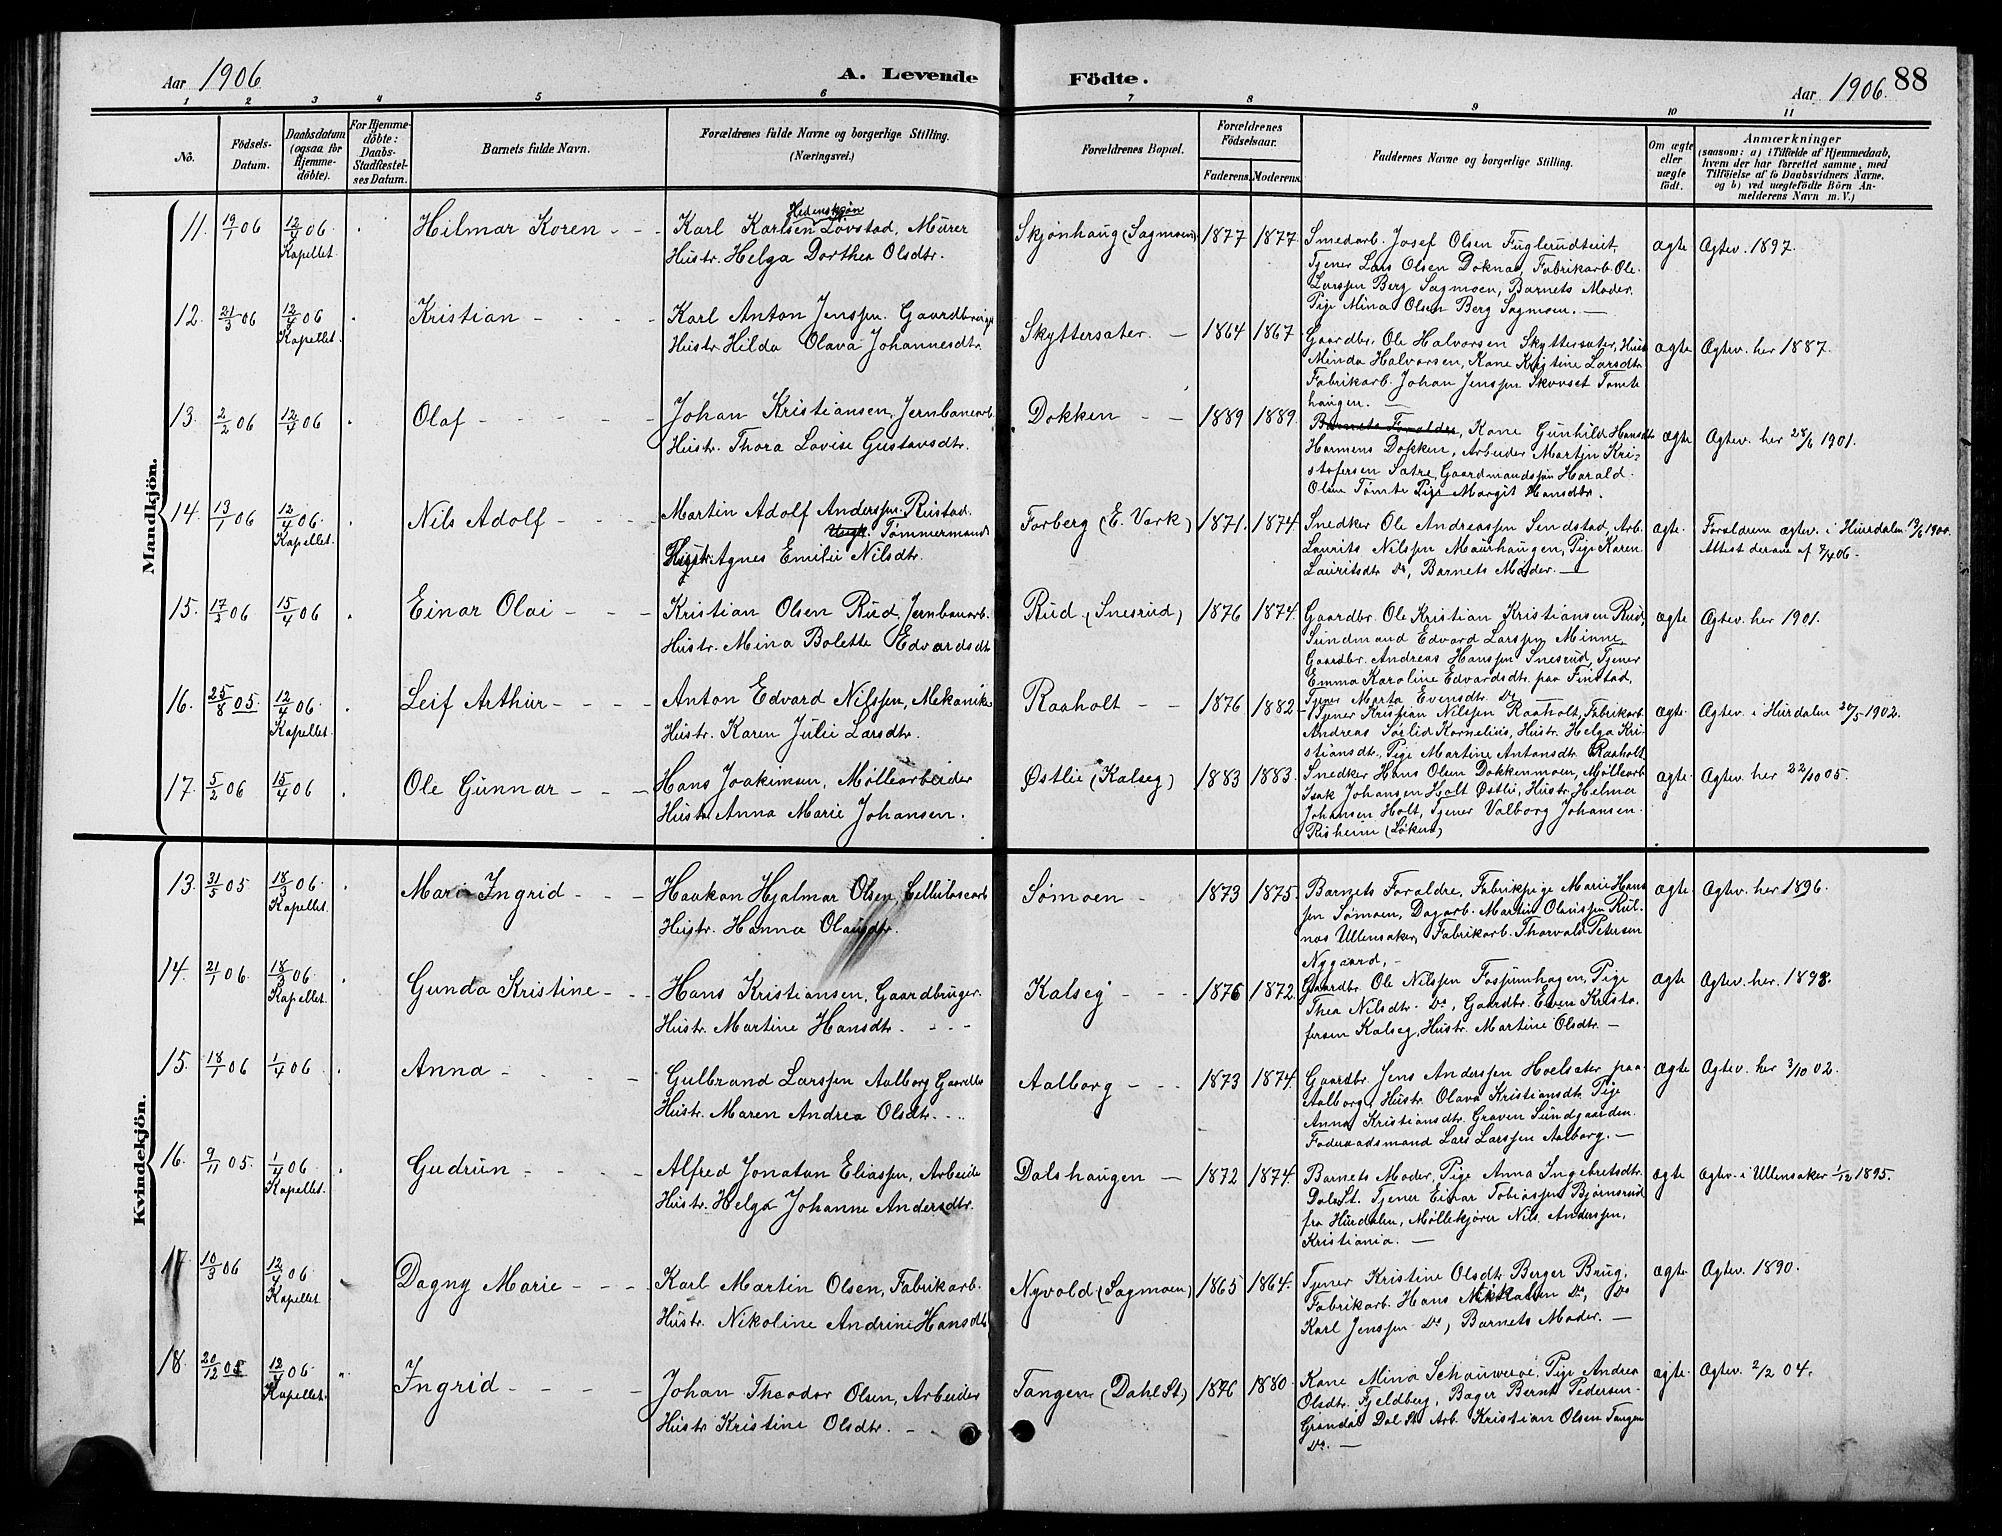 Aar 1906
A. Levende Födte.
Aar 1906. 88
1 2 3 4 5 6 7 8 9 10 11
No.
Födsels-Datum.
Daabsdatum (ogsaa for Hjemme-döbte).
For Hjemme-döbte: Daabs-Stadfæstel-ses Datum.
Barnets fulde Navn.
Forældrenes fulde Navne og borgerlige Stilling.
(Næringsvei.)
Forældrenes Bopæl.
Forældrenes Födselsaar.
Faderens. Moderens.
Faddernes Navne og borgerlige Stilling.
Om ægte eller uægte födt.
Anmærkninger
(saasom: a) i Tilfælde af Hjemmedaab,
hvem der har forrettet samme, med
Tilföielse af to Daabsvidners Navne,
og b) ved uægtefödte Börn An-
melderens Navn m. V.)
Mandkjön.
11. 19/1 06 12/4 06. Kapellet. Hilmar Koren - - - Karl Karlsen Løvstad, Murer
Hustr. Helga Dorthea Olsdtr.
Skjønhaug (Sagmoen) 1877 1877.
Smedarb. Josef Olsen Fuglerudteit,
Tjener Lars Olsen Doknas, Fabrikarb. Ole
Larssen Berg Sagmoen, Barnets Moder,
Pige Mina Olsen Berg Sagmoen. —
ægte Ægtev. 1897.
12. 21/3 06 12/4 06 Kapellet. Kristian - - - - Karl Anton Jenssen. Gaardbruger
Hustr. Hilda Olava Johannesdtr.
Skyttersæter. — 1864 1867
Gaardbr. Ole Halvorsen Skyttersæter, Hustr
Minda Halvorsen, Kone Kristine Larsdtr
Fabrikarb. Johan Jenssen Skovset Tømte
haugen. —
ægte Ægtev. her 1887.
13. 2/2 06 12/4 06 Olaf - - - - - Johan Kristiansen, Jernbanearb.
Hustr. Thora Lovise Gustavsdtr.
Dokken - - 1889 1889.
Barnets Forældre, Kone Gunhild Hansdtr
Harmens Dokken, Arbeider Martin Kri-
stofersen Sætre, Gaardmandssøn Harald
Olsen Tømte Pige Margit Hansdtr.
ægte Ægtev. her 28/6 1901.
14. 13/1 06 12/4 06. Kapellet. Nils Adolf - - - - Martin Adolf Anderssen. Rustad.
Tømmermand
Hustr. Agnes Emilie Nilsdtr.
Forberg (E. Værk) 1871. 1874.
Snedker Ole Andreassen Sendstad, Arb.
Laurits Nilssen Maurhaugen, Pige Karen
Lauritsdtr Do, Barnets Moder. —
ægte. Forældrene ægtev. i Hurdalen 19/6 1900.
Attest derom af 7/4 06 -
15. 17/2 06 15/4 06 Einar Olai - - - Kristian Olsen Rud, Jernbanearb.
Hustr. Mina Bolette Edvardsdtr
Rud. (Snesrud) 1876 1874.
Gaardbr. Ole Kristian Kristiansen Rud,
Sundmand Edvard Larssen Minne
Gaardbr. Andreas Hanssen Snesrud, Tjener
Emma Karoline Edvardsdtr. paa Finstad,
Tjener Marta Evensdtr. Do
ægte Ægtev. her 1901.
16. 25/8 05. 12/4 06 Kapellet. Leif Arthur - - - - Anton Edvard Nilssen, Mekanike
Hustr. Karen Julie Larsdtr.
Raaholt - - 1876 1882
Tjener Kristian Nilssen Raaholt, Fabrikarb
Andreas Sørlid Kornelius, Hustr. Helga Kri-
stiansdtr. Pige Martine Antonsdtr Raaholt
ægte Ægtev. i Hurdalen 20/5 1902.
17. 5/2 06 15/4 06 Ole Gunnar - - - Hans Joakimsen, Møllearbeider
Hustr. Anna Marie Johansen.
Østlie (Kalseg) 1883 1883.
Snedker Hans Olsen Dokkenmoen, Møllearb
Isak Johansen Holt Østli, Hustr. Helma
Johansen Holt, Tjener Valborg Johansen
Risheim (Løken)
ægte. Ægtev. her 22/10 05.
Kvindekjön.
13. 31/5 05 18/3 06. Kapellet. Marie Ingrid - - - Haakon Hjalmar Olsen, Cellulosearb
Hustr. Hanna Olausdtr.
Sømoen - - 1873 1875.
Barnets Forældre, Fabrikpige Marie Hans
sen Sømoen, Dagarb. Martin Olaussen Rul-
næs Ullensaker, Fabrikarb. Thorvald Petersen
Nygaard. -
ægte Ægtev. her 1896.
14. 21/1 06 18/3 06. Kapellet Gunda Kristine - - - Hans Kristiansen, Gaardbruger.
Hustr. Martine Hansdtr. - - -
Kalseg - - - 1876 1872.
Gaardbr. Ole Nilssen Fossumhagen, Pige
Thea Nilsdtr. Do, Gaardbr. Even Kristo-
fersen Kalseg, Hustr. Martine Olsdtr. —
ægte Ægtev. her. 1898.
15. 18/1 06 1/4 06 Anna - - - - Gulbrand Larssen Aalborg Gaardbr
Hustr. Maren Andrea Olsdtr. - - -
Aalborg - - - 1873 1874.
Gaardbr. Jens Anderssen Hoelsæter paa
Aalborg, Hustr. Olava Kristiansdtr Pige
Anna Kristiansdtr. Graven Sundgaarden.
Føderaadsmand Lars Larssen Aalborg. —
ægte Ægtev. her 3/10 02.
16. 9/11 05 1/4 06 Kapellet. Gudrun - - - - Alfred Jonatan Eliassen, Arbeide
Hustr. Helga Johanne Andersdtr.
Dalshaugen — 1872 1874.
Barnets Moder, Pige Anna Ingebretsdtr.
Dale St. Tjener Einar Tobiassen Bjørnsrud
fra Hurdalen, Møllekjører Nils Anderssen,
Kristiania. —
ægte Ægtev. i Ullensaker 1/12 1895.
17 10/3 06 12/4 06. Kapellet Dagny Marie - - - Karl Martin Olsen, Fabrikarb.
Hustr. Nikoline Andrine Hansdtr
Nyvold (Sagmoen) 1865 1864.
Tjener Kristine Olsdtr Berger Brug,
Fabrikarb. Hans Do, Do
Karl Jenssen Do, Barnets Moder. —
ægte Ægtev. 1890.
18. 20/12 05 12/4 06 Kapellet. Ingrid - - - - Johan Theodor Olsen, Arbeider
Hustr Kristine Olsdtr. -
Tangen (Dahl St) 1876 1880.
Kone Mina Schauweroe, Pige Andrea
Olsdtr. Fjeldberg, Bager Bernt Pedersen
Grandal Dal St. Arb. Kristian Olsen Tangen
Do. —
ægte. Ægtev. 2/2 04.